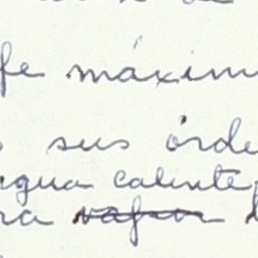 fe máxim
sus órde
agua caliente,
ra vapor